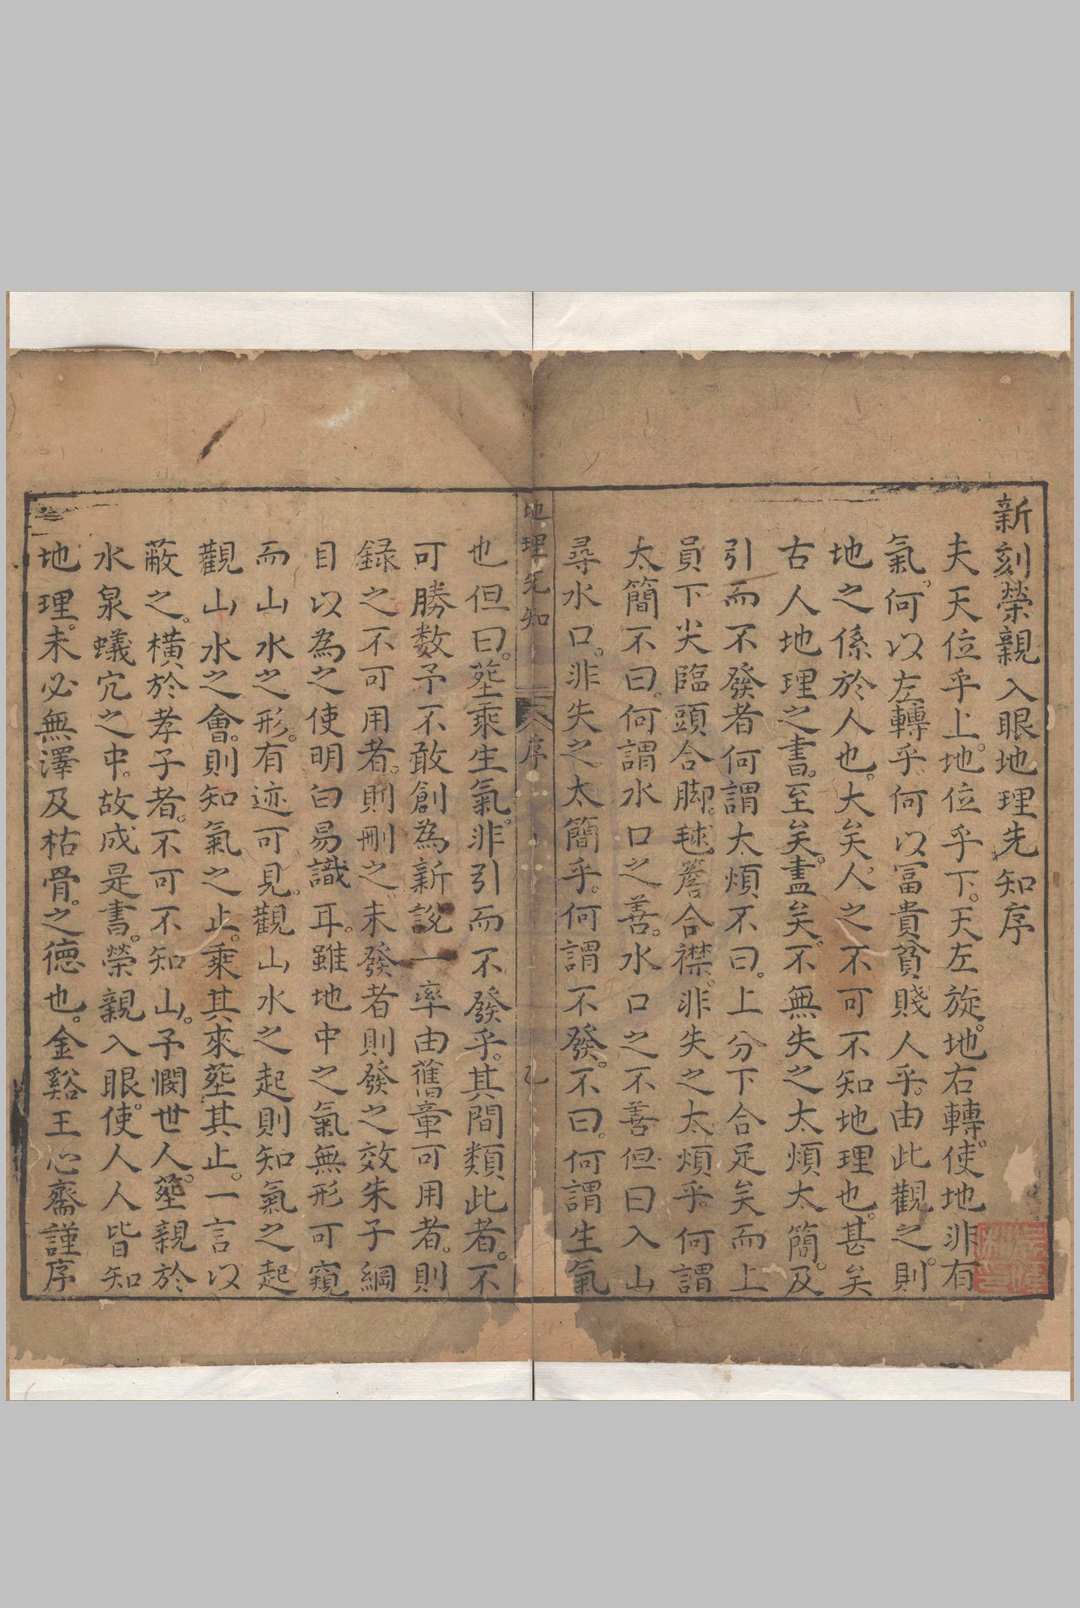 新刻榮親入眼地理先知序
夫天位乎上。地位乎下。天左旋。地右轉。使地非有
氣。何以左轉乎。何以富貴貧賤人乎。由此觀之。則
地之係於人也。大矣。人之不可不知地理也。甚矣
古人地理之書。至矣。盡矣。不無失之太煩太簡。及
引而不發者何謂太煩不曰。上分下合足矣而上
員下尖臨頭合脚。毬簷合襟。非失之太煩乎。何謂
太簡不曰。何謂水口之善。水口之不善但曰入山
尋水口。非失之太簡乎。何謂不發。不曰。何謂生氣
地理先知
序
乙
也但曰。塟乘生氣。非引而不發乎。其間類此者。不
可勝数予不敢創為新說一率由舊章可用者。則
録之不可用者。則刪之未發者則發之效朱子綱
目以為之使明白易識耳。雖地中之氣無形可窺
而山水之形。有迹可見。觀山水之起則知氣之起
觀山水之會。則知氣之止。乘其來塟其止。一言以
蔽之。橫於孝子者。不可不知山。予憫世人。塟親於
水泉蟻穴之中。故成是書。榮親入眼。使人人皆知
地理。未必無澤及枯骨。之德也。金谿王心齋謹序